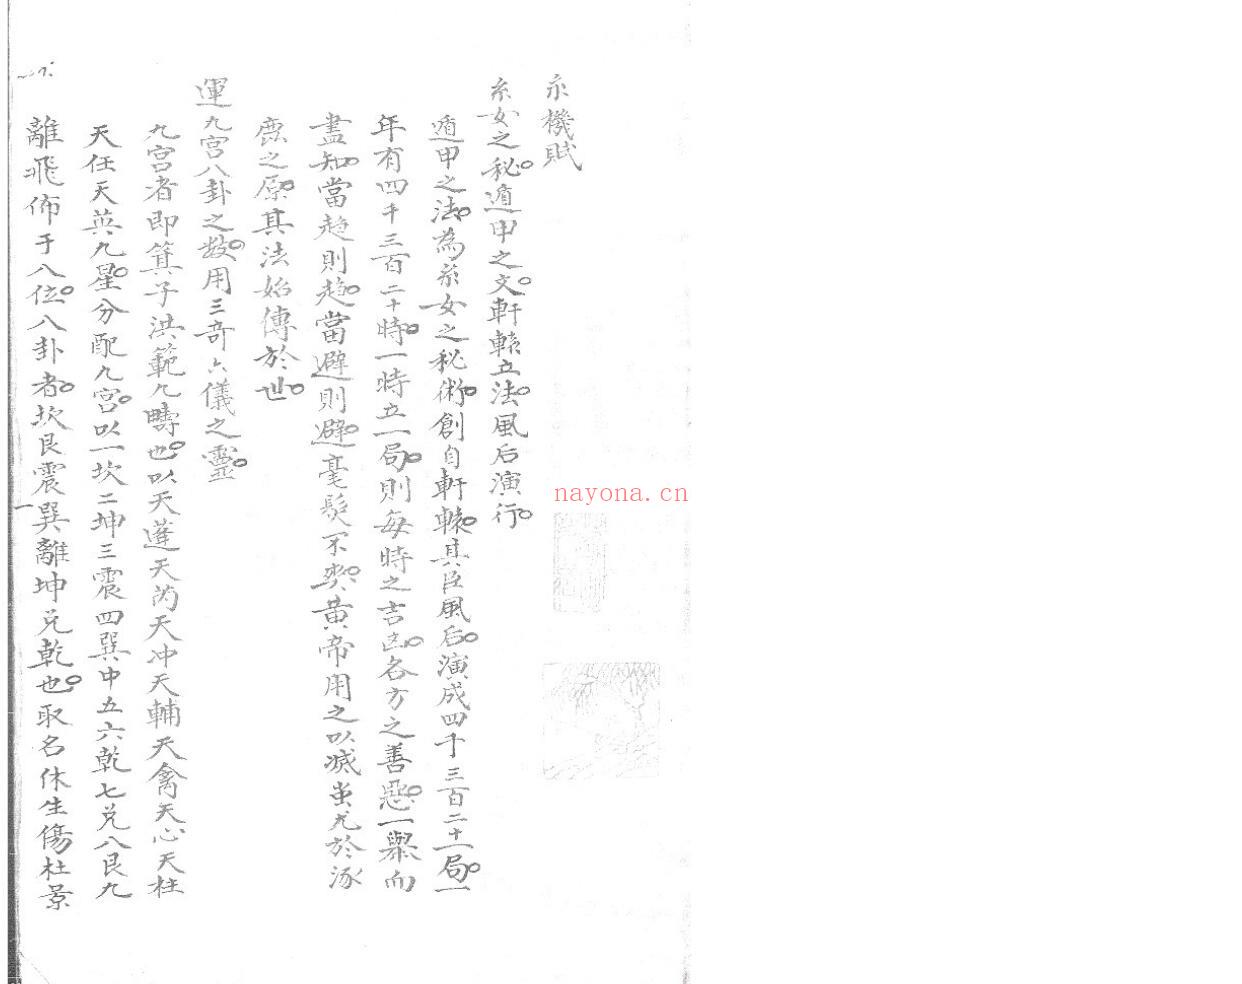 永機賦
系女之秘遁甲之文軒轅立法風后演行
遁甲之法為系女之秘術創自軒轅其臣風后演成四千三百二十一局一
年有四千三百二十時一時立一局則每時之吉凶各方之善惡一舉而
盡知當趨則趨當避則避毫髮不爽黃帝用之以滅蚩尤於涿
鹿之原其法始傳於世
運九宮八卦之数用三奇六儀之靈
九宮者即箕子洪範九疇也以天蓬天芮天冲天輔天禽天心天柱
天任天英九星分配九宮以一坎二坤三震四巽中五六乾七兑八艮九
離飛佈于八位八卦者坎艮震巽離坤兑乾也取名休生傷杜景
nayona.cn